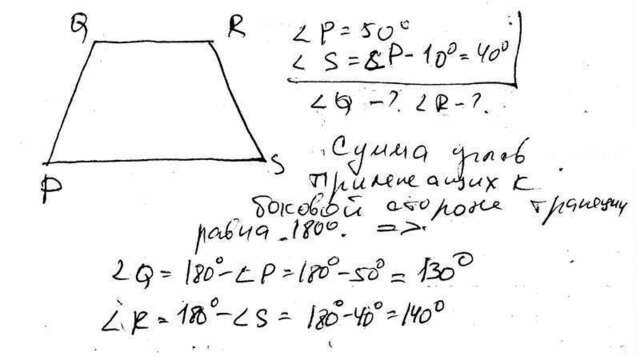 Q R
∠P=50°
∠S=∠P-10°=40°
∠Q -? ∠R -?
P S
Сумма углов
прилежащих к
боковой стороне трапеции
равна 180°. =>
∠Q=180°-∠P=180°-50°=130°
∠R=180°-∠S=180°-40°=140°